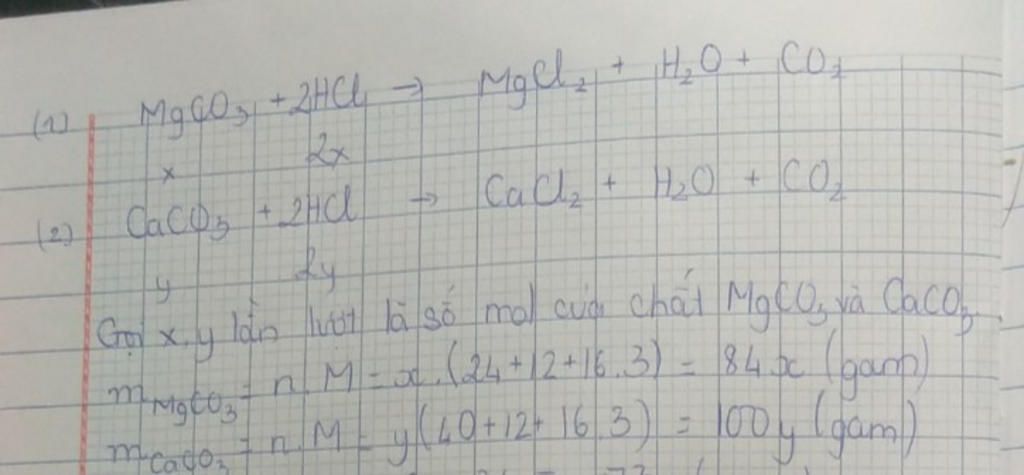 (1) MgCO₃ + 2HCl → MgCl₂ + H₂O + CO₂
x 2x
(2) CaCO₃ + 2HCl → CaCl₂ + H₂O + CO₂
y 2y
Gọi x, y lần lượt là số mol của chất MgCO₃ và CaCO₃
m MgCO₃ = n.M = x.(24+12+16.3) = 84.x (gam)
m CaCO₃ = n.M = y(40+12+16.3) = 100y (gam)